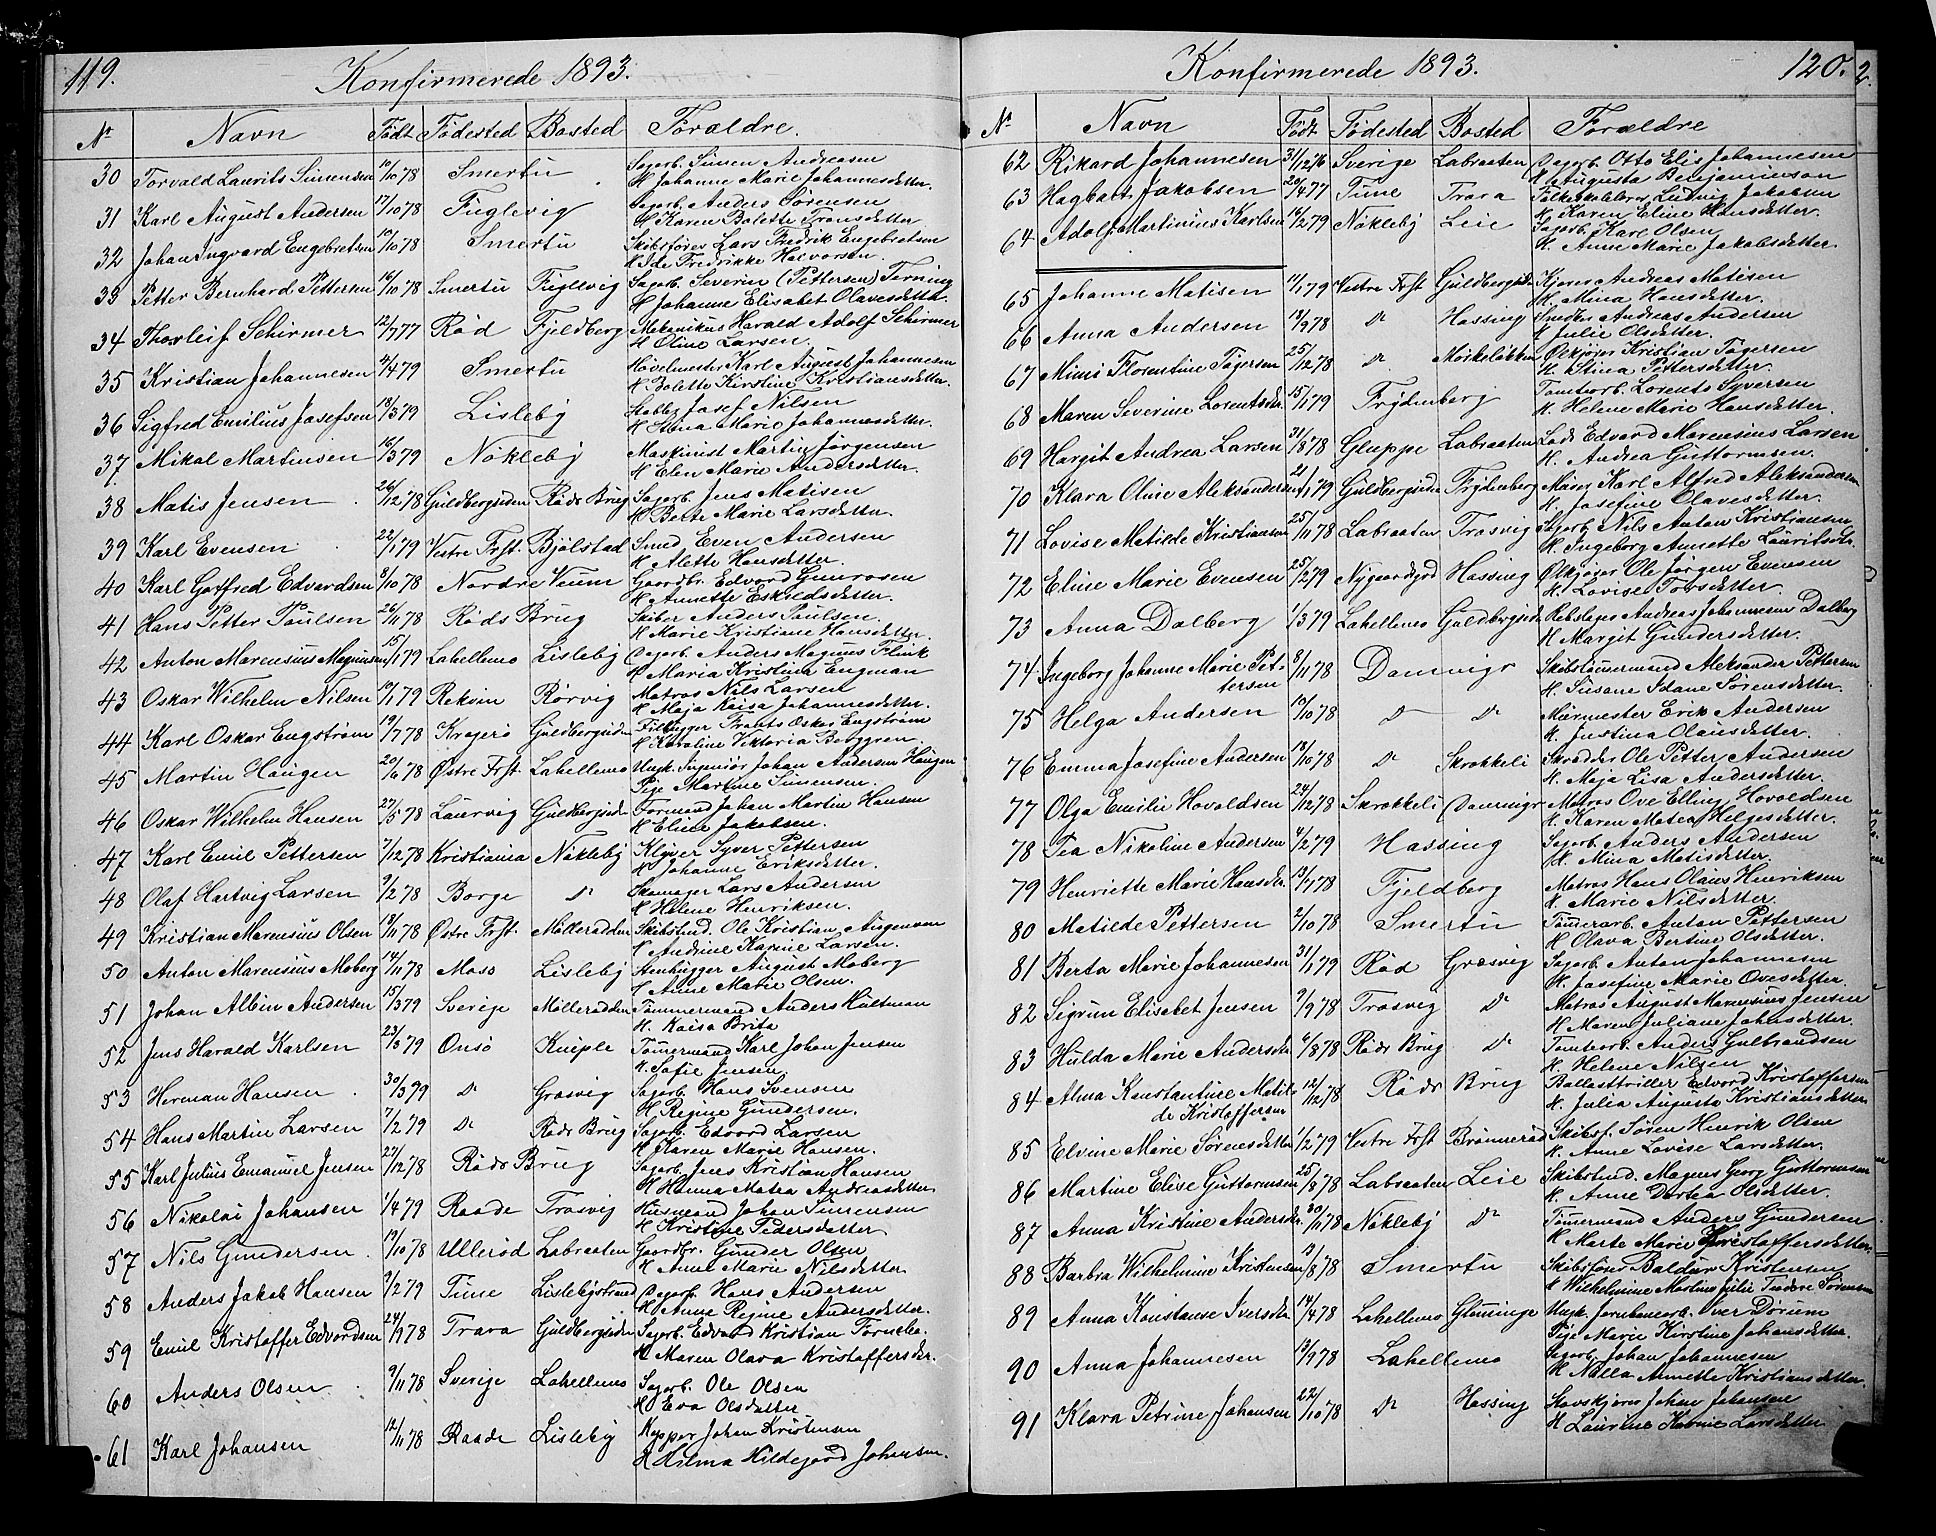 119.
Konfirmerede 1893.
Nr Navn Født Fødested Bosted Forældre.
30 Torvald Laurits Simensen 10/10 78 Smertu Sagarb. Simen Andreasen
H Johanne Marie Johannesdetter.
31 Karl August Andersen 17/10 78 Fuglevig Sagarb. Anders Sørensen
H Karen Bolette Transdetter
32 Johan Ingvard Engebretsen 10/10 78 Smertu Skibsfører Lars Fredrik Engebretsen
H Ide Fredrikke Halvorsen.
33 Petter Bernhard Pettersen 16/10 78 Smertu Fuglevig Sagarb. Severin (Pettersen) Terning
H Johanne Elisabet Olavesdetter.
34 Thorleif Schirmer 12/7 77 Rød Fjeldberg Mekanikus Harald Adolf Schirmer
H Oline Larsen.
35 Kristian Johannesen 4/4 79 Smertu Høvelmester Karl August Johannesen
H Bolette Kirstine Kristiansdetter.
36 Sigfred Emilius Josefsen 18/3 79 Lisleby Stabler Josef Nilsen
H Stina Marie Johannesdetter.
37 Mikal Martinsen 16/3 79 Nökleby Maskinist Martin Jørgensen
H Elen Marie Andersdetter.
38 Matis Jensen 26/12 78 Guldbergsiden Røds Brug Sagarb. Jens Matisen
H Berte Marie Larsdetter.
39 Karl Evensen 22/1 79 Vestre Frst. Bjølstad Smed Even Andersen
H Alette Hansdetter.
40 Karl Gotfred Edvardsen 8/10 78 Nordre Veum Gaardbr. Edvard Gunrosen
H Annette Eskildsdetter.
41 Hans Petter Paulsen 26/11 78 Røds Brug Skiber Anders Paulsen
H Marie Kristiane Hansdetter.
42 Anton Marensius Magnusen 15/1 79 Lahellemo Lisleby Dagarb. Anders Magnus Flink
H Maria Kristina Engman
43 Oskar Wilhelm Nilsen 10/1 79 Rekvin Rørvig Matros Nils Larsen
H Maja Kaisa Johannesdetter.
44 Karl Oskar Engstrøm 19/7 78 Kragerø Guldbergsiden Filhugger Frants Oskar Engstrøm
H Karoline Viktoria Berggren.
45 Martin Haugen 20/6 78 Østre Frst. Lahellemo Ungk. Ingeniør Johan Andersen Haugen
Pige Martine Simensen
46 Oskar Wilhelm Hansen 27/5 78 Laurvig Guldbergsid. Formand Johan Martin Hansen
H Eline Jakobsen.
47 Karl Emil Pettersen 7/12 78 Kristiania Nökleby Kløver Syver Pettersen
H Johanne Eriksdetter.
48 Olaf Hartvig Larsen 9/2 78 Borge Do Skomager Lars Andersen
H Helene Henriksen.
49 Kristian Marensius Olsen 18/11 78 Østre Frst. Mölleradden Skibstmd. Ole Kristian Augensen
H Andrine Karine Larsen.
50 Anton Marensius Moberg 14/11 78 Moss Lisleby Stenhugger August Moberg
H Anne Marie Olsen.
51 Johan Albin Andersen 15/3 79 Sverige Mölleradden Tömmermand Anders Hultman
H. Kaisa Brita
52 Jens Harald Karlsen 23/3 79 Onsö Kniple Tömmermand Karl Johan Jensen
H. Sofie Jensen
53 Herman Hansen 30/3 79 Do Gresvig Sagarb. Hans Svensen
H Regine Gundersen.
54 Hans Martin Larsen 7/2 79 Do Røds Brug Sagarb. Edvard Larsen
H Karen Marie Hansen.
55 Karl Julius Emanuel Jensen 27/12 78 Røds Brug Sagarb. Jens Kristian Hansen
H Hanna Matea Andreasdetter
56 Nikolai Johansen 1/4 79 Raade Trosvig Husmand Johan Simensen
H Kristine Pedersdatter
57 Nils Gundersen 19/10 78 Ullerød Labraaten Gaardbr. Gunder Olsen
H Anne Marie Nilsdetter
58 Anders Jakob Hansen 9/2 79 Tune Lislebystrand Dagarb. Hans Andersen
H Anne Regine Andersdetter.
59 Emil Kristoffer Edvardsen 24/9 78 Trara Guldbergsiden Sagarb. Edvard Kristian Tornebo.
H Maren Olava Kristoffersdtr.
60 Anders Olsen 9/11 78 Sverige Lahellemo Sagarb. Ole Olsen
H Eva Olsdatter
61 Karl Johansen 12/11 78 Raade Lisleby Kypper Johan Kristensen
H Hilma Hildegard Johansen.
Konfirmerede 1893.
120.
Nr Navn Født Fødested Bosted Forældre
62 Rikard Johannesen 31/12 76 Sverige Labraaten Dagarb. Otto Elis Johannesen
H Augusta Benjaminson
63 Hagbart Jakobsen 20/4 77 Tune Trara Folkeskolelærer Ludvig Jakobsen
H. Karen Eline Hansdetter.
64 Adolf Martinius Karlsen 16/2 79 Nökleby Leie Sagarb. Karl Olsen
H. Anne Marie Jakobsdetter.
65 Johanne Matisen 11/1 79 Vestre Frst Guldbergsid. Kjører Andreas Matisen
H. Mina Hansdetter.
66 Anna Andersen 18/9 78 Do Hassing Snedker Andreas Andersen
H Julie Olsdetter.
67 Mimi Florentine Tøgersen 25/12 78 Do Mörkeløkken Ölkjører Kristian Tøgersen
H Stina Pettersdetter.
68 Maren Severine Lorentsdtr. 15/1 79 Frydenberg Tomtearb. Lorents Syversen
H. Helene Marie Hansdetter.
69 Hargit Andrea Larsen 31/8 78 Gluppe Labraaten Lods Edvard Marensius Larsen
H. Andrea Guttormsen.
70 Klara Oline Aleksandersen 21/1 79 Guldbergsiden Frydenberg Murer Karl Alfred Aleksandersen
H. Josefine Olavesdetter.
71 Lovise Matilde Kristiansen 25/11 78 Labraaten Trosvig Sagarb. Nils Anton Kristiansen
H. Ingeborg Annette Lauritsdtr.
72 Eline Marie Evensen 25/2 79 Nygaardsgrd Hassing Ölkjører Ole Jørgen Evensen
H. Lovise Torsdetter.
73 Anna Dalberg 1/3 79 Lahellemo Guldbergsid. Rebslager Andreas Johannesen Dalberg
H Margit Gundersdetter.
74 Ingeborg Johanne Marie Pet- 8/11 78 Damvigr Skibstömmermand Aleksander Pettersen
tersen H. Susane Idane Sørensdetter.
75 Helga Andersen 10/10 78 Do Do Murmester Erik Andersen
H. Justina Olausdetter.
76 Emma Josefine Andersen 18/10 78 Do Skrökkeli Skrædder Ole Petter Andersen
H. Maja Lisa Andersdetter.
77 Olga Emilie Hovaldsen 24/12 78 Skrokkeli Damvigr Matros Ove Elling Hovaldsen
H. Karen Matea Helgesdetter.
78 Tea Nikoline Andersen 4/2 79 Hassing Sagarb. Anders Andersen
H. Mina Matisdetter.
79 Henriette Marie Hansdtr. 13/7 78 Fjeldberg Matros Hans Olaus Henriksen
H. Marie Nilsdetter.
80 Matilde Pettersen 2/10 78 Smertu Tömerarb. Anton Pettersen
H Olava Bertine Olsdetter.
81 Berta Marie Johannesen 31/1 79 Rød Græsvig Sagarb. Anton Johannesen
H. Josefine Marie Ovesdetter
82 Sigrun Elisabet Jensen 9/9 78 Trosvig Do Matros August Marensius Jensen
H Maren Juliane Johnsdetter
83 Hulda Marie Andersdtr 6/8 78 Røds Brug Do Tomtearb. Anders Gulbrandsen
H. Helene Nilsen
84 Alma Konstantine Matil- 12/12 78 Røds Brug Ballasttriller Edvard Kristoffersen
de Kristoffersen H. Julia Augusta Kristiansdetter
85 Elvine Marie Sørensdetter 1/2 79 Vestre Frst Brönnerød Skibsf. Søren Henrik Olsen
H. Anne Lovise Larsdetter.
86 Martine Elise Guttormsen 25/8 78 Labraaten Leie Skibstmd. Magnus Georg Guttormsen
H. Anne Dortea Olsdetter.
87 Anna Kristine Andersdtr. 30/11 78 Nökleby Do Tömermand Anders Gundersen
H Marte Marie Kristoffersdetter.
88 Barbra Wilhelmine Kristensen 13/8 78 Smertu Skibsfører Baldur Kristensen
H Wilhelmine Martine Julie Tudore Sørensen
89 Anna Konstanse Iversdtr 14/4 78 Lahellemo Glemminge Ungk. Jernbanearb. Iver Dorum
Pige Marie Kirstine Johansdetter.
90 Anna Johannesen 13/9 78 Lahellemo Sagarb. Johan Johannesen
H Nalla Annette Kristiansdetter.
91 Klara Petrine Johansen 22/10 78 Do Hassing Stavskjører Johan Johansen
H Laurine Karine Larsdetter